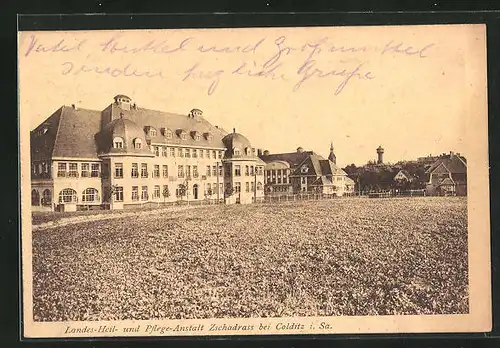 Vatel Herttel und Großmuttel
senden herzliche Grüße
Landes-Heil- und Pflege-Anstalt Zschadrass bei Colditz i. Sa.